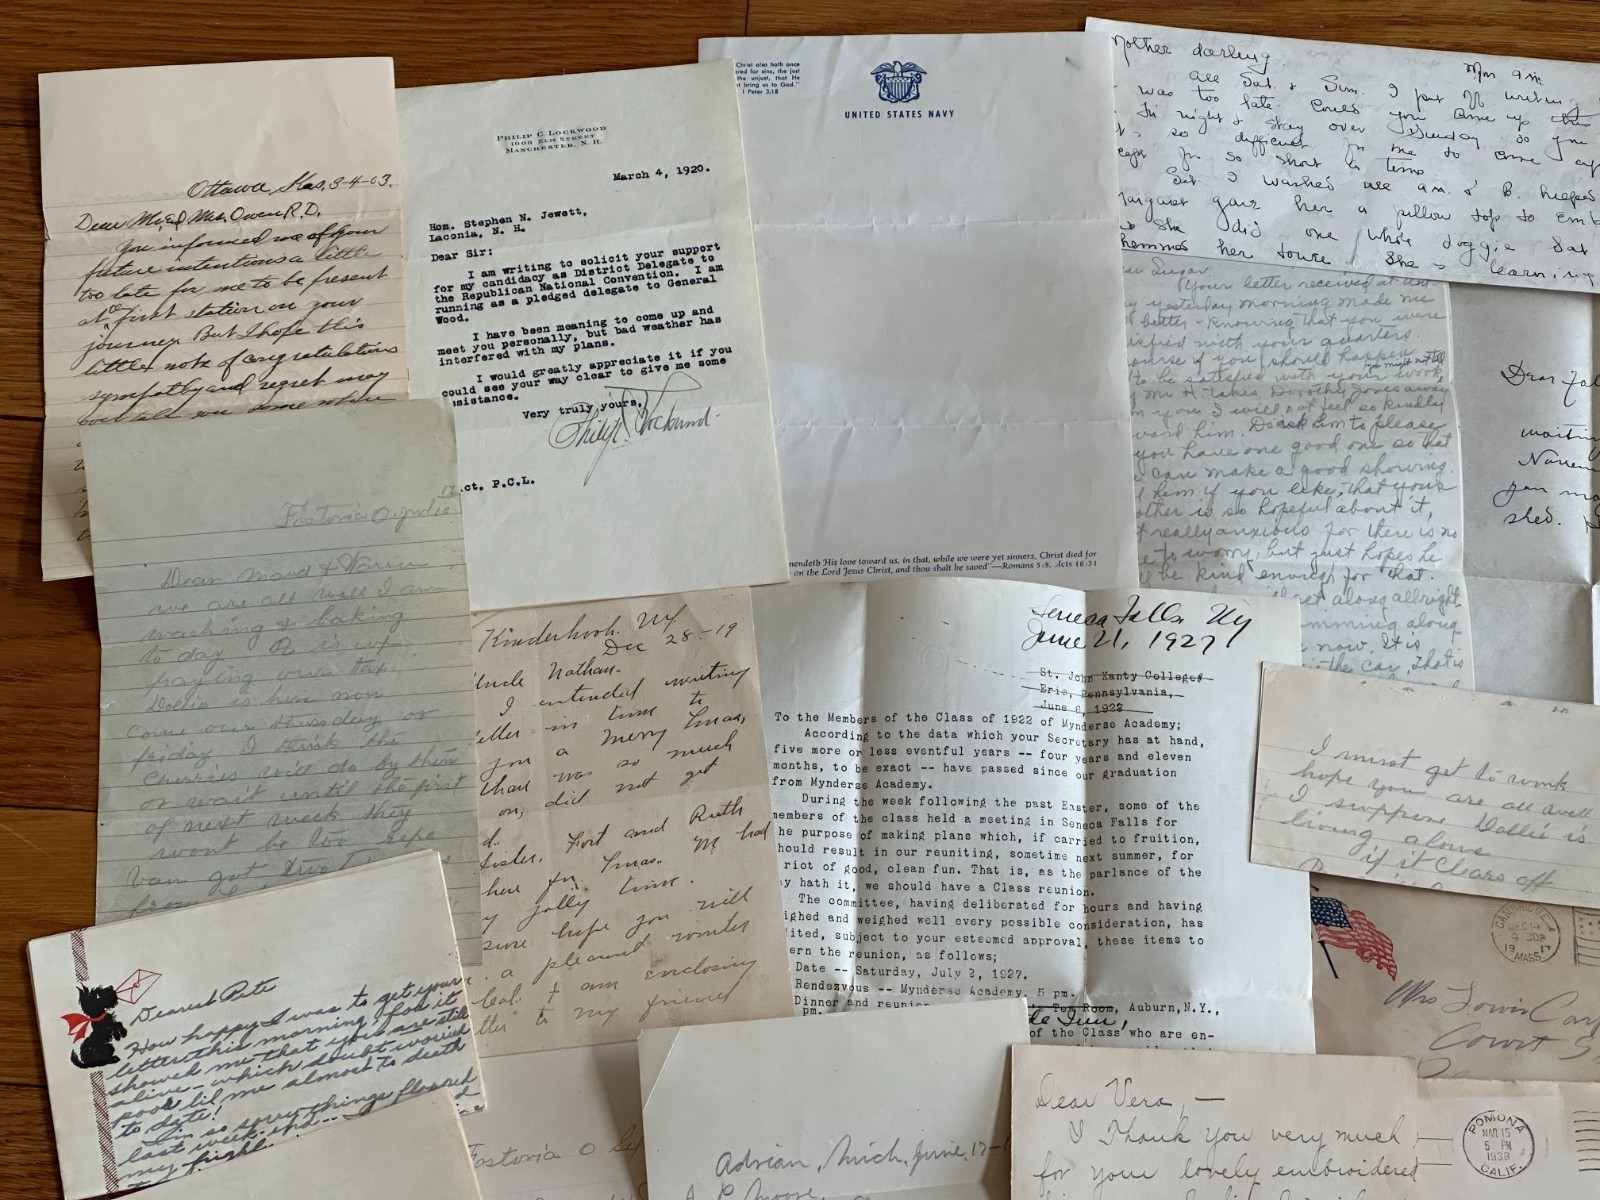 Ottawa, Kas, 3-4-03.
Dear Mr, & Mrs. Owen R.D.
You informed me of your
future intentions a little
too late for me to be present
at first station on your
journey. But I hope this
little note of congratulations
sympathy and regret may
PHILIP C. LOCKWOOD
1008 ELM STREET
MANCHESTER, N. H.
March 4, 1920.
Hon. Stephen N. Jewett,
Laconia, N. H.
Dear Sir:
I am writing to solicit your support
for my candidacy as District Delegate to
the Republican National Convention. I am
running as a pledged delegate to General
Wood.
I have been meaning to come up and
meet you personally, but bad weather has
interfered with my plans.
I would greatly appreciate it if you
could see your way clear to give me some
ssistance.
Very truly yours,
ct. P.C.L.
Christ also hath once
red for sins, the just
the unjust, that He
t bring us to God."
1 Peter 3:18
UNITED STATES NAVY
mendeth His love toward us, in that, while we were yet sinners, Christ died for
on the Lord Jesus Christ, and thou shalt be saved"—Romans 5:8, Acts 16:31
Mother darling
Mon 9 am.
all Sat. & Sun. I put off writing
was too late. Could you come up
night & stay over Sunday so you
so difficult for me to come
for so short a time
Sat. I washed all a.m. & B. helped
Margaret gave her a pillow top to
She did one whole doggie Sat
She is learning
Sugar
Your letter received at
yesterday morning made me
better - knowing that you were
isfied with your quarters.
ourse if you should happen
to be satisfied with your work
Mr H. takes Dorothy Jones away
m you I will not feel so kindly
ward him. Do ask him to please
you have one good one so that
can make a good showing.
him if you like, that your
other is so hopeful about it,
t really anxious for there is no
to worry, but just hopes he
be kind enough for that.
along allright
mming along
now. It is
the car, that is
Dear
waiting
shed.
Fostoria O. July
Dear Maud & Warren
we are all well I am
washing & baking
to day
paying our tax
Dollie is here now
come over thursday or
friday I think the
cherries will do by then
or wait until the first
of next week they
wont be too ripe
van got
Kinderhook. NY
Dec 28-19
Uncle Nathan.
I intended writing
letter in time to
you a Merry Xmas,
than was so much
on, did not get
d.
Sister, Fort and Ruth
here for Xmas. M had
y jolly time.
sure hope you will
a pleasant winter
I am enclosing
tter to my friend
Seneca Falls, NY
June 21, 1927
St. John Kanty College,
Erie, Pennsylvania,
June 6, 1922
To the Members of the Class of 1922 of Mynderse Academy;
According to the data which your Secretary has at hand,
five more or less eventful years -- four years and eleven
months, to be exact -- have passed since our graduation
from Mynderse Academy.
During the week following the past Easter, some of the
members of the class held a meeting in Seneca Falls for
he purpose of making plans which, if carried to fruition,
hould result in our reuniting, sometime next summer, for
riot of good, clean fun. That is, as the parlance of the
y hath it, we should have a Class reunion.
The committee, having deliberated for hours and having
ighed and weighed well every possible consideration, has
dited, subject to your esteemed approval, these items to
ern the reunion, as follows;
Date -- Saturday, July 2, 1927.
Rendezvous -- Mynderse Academy, 5 pm.
Dinner and reunion Room, Auburn, N.Y.,
pm. Inn,
of the Class who are en-
I must get to work
hope you are all well
I suppose Dollie is
living alone
if it clears off
CAMBRIDGE
DEC 14
9 30P
1917
MASS.
Mrs
Court S
Dearest Pete
How happy I was to get your
letter this morning, for it
showed me that you are still
alive - which doubt worried
poor lil me almost to death
to date!
I'm so sorry things flopped
last week-end
Fostoria O
Adrian, Mich, June, 17-1
Moore,
Dear Vera, —
I Thank you very much
for your lovely embroidered
POMONA
MAR 15
5 PM
1939
CALIF.